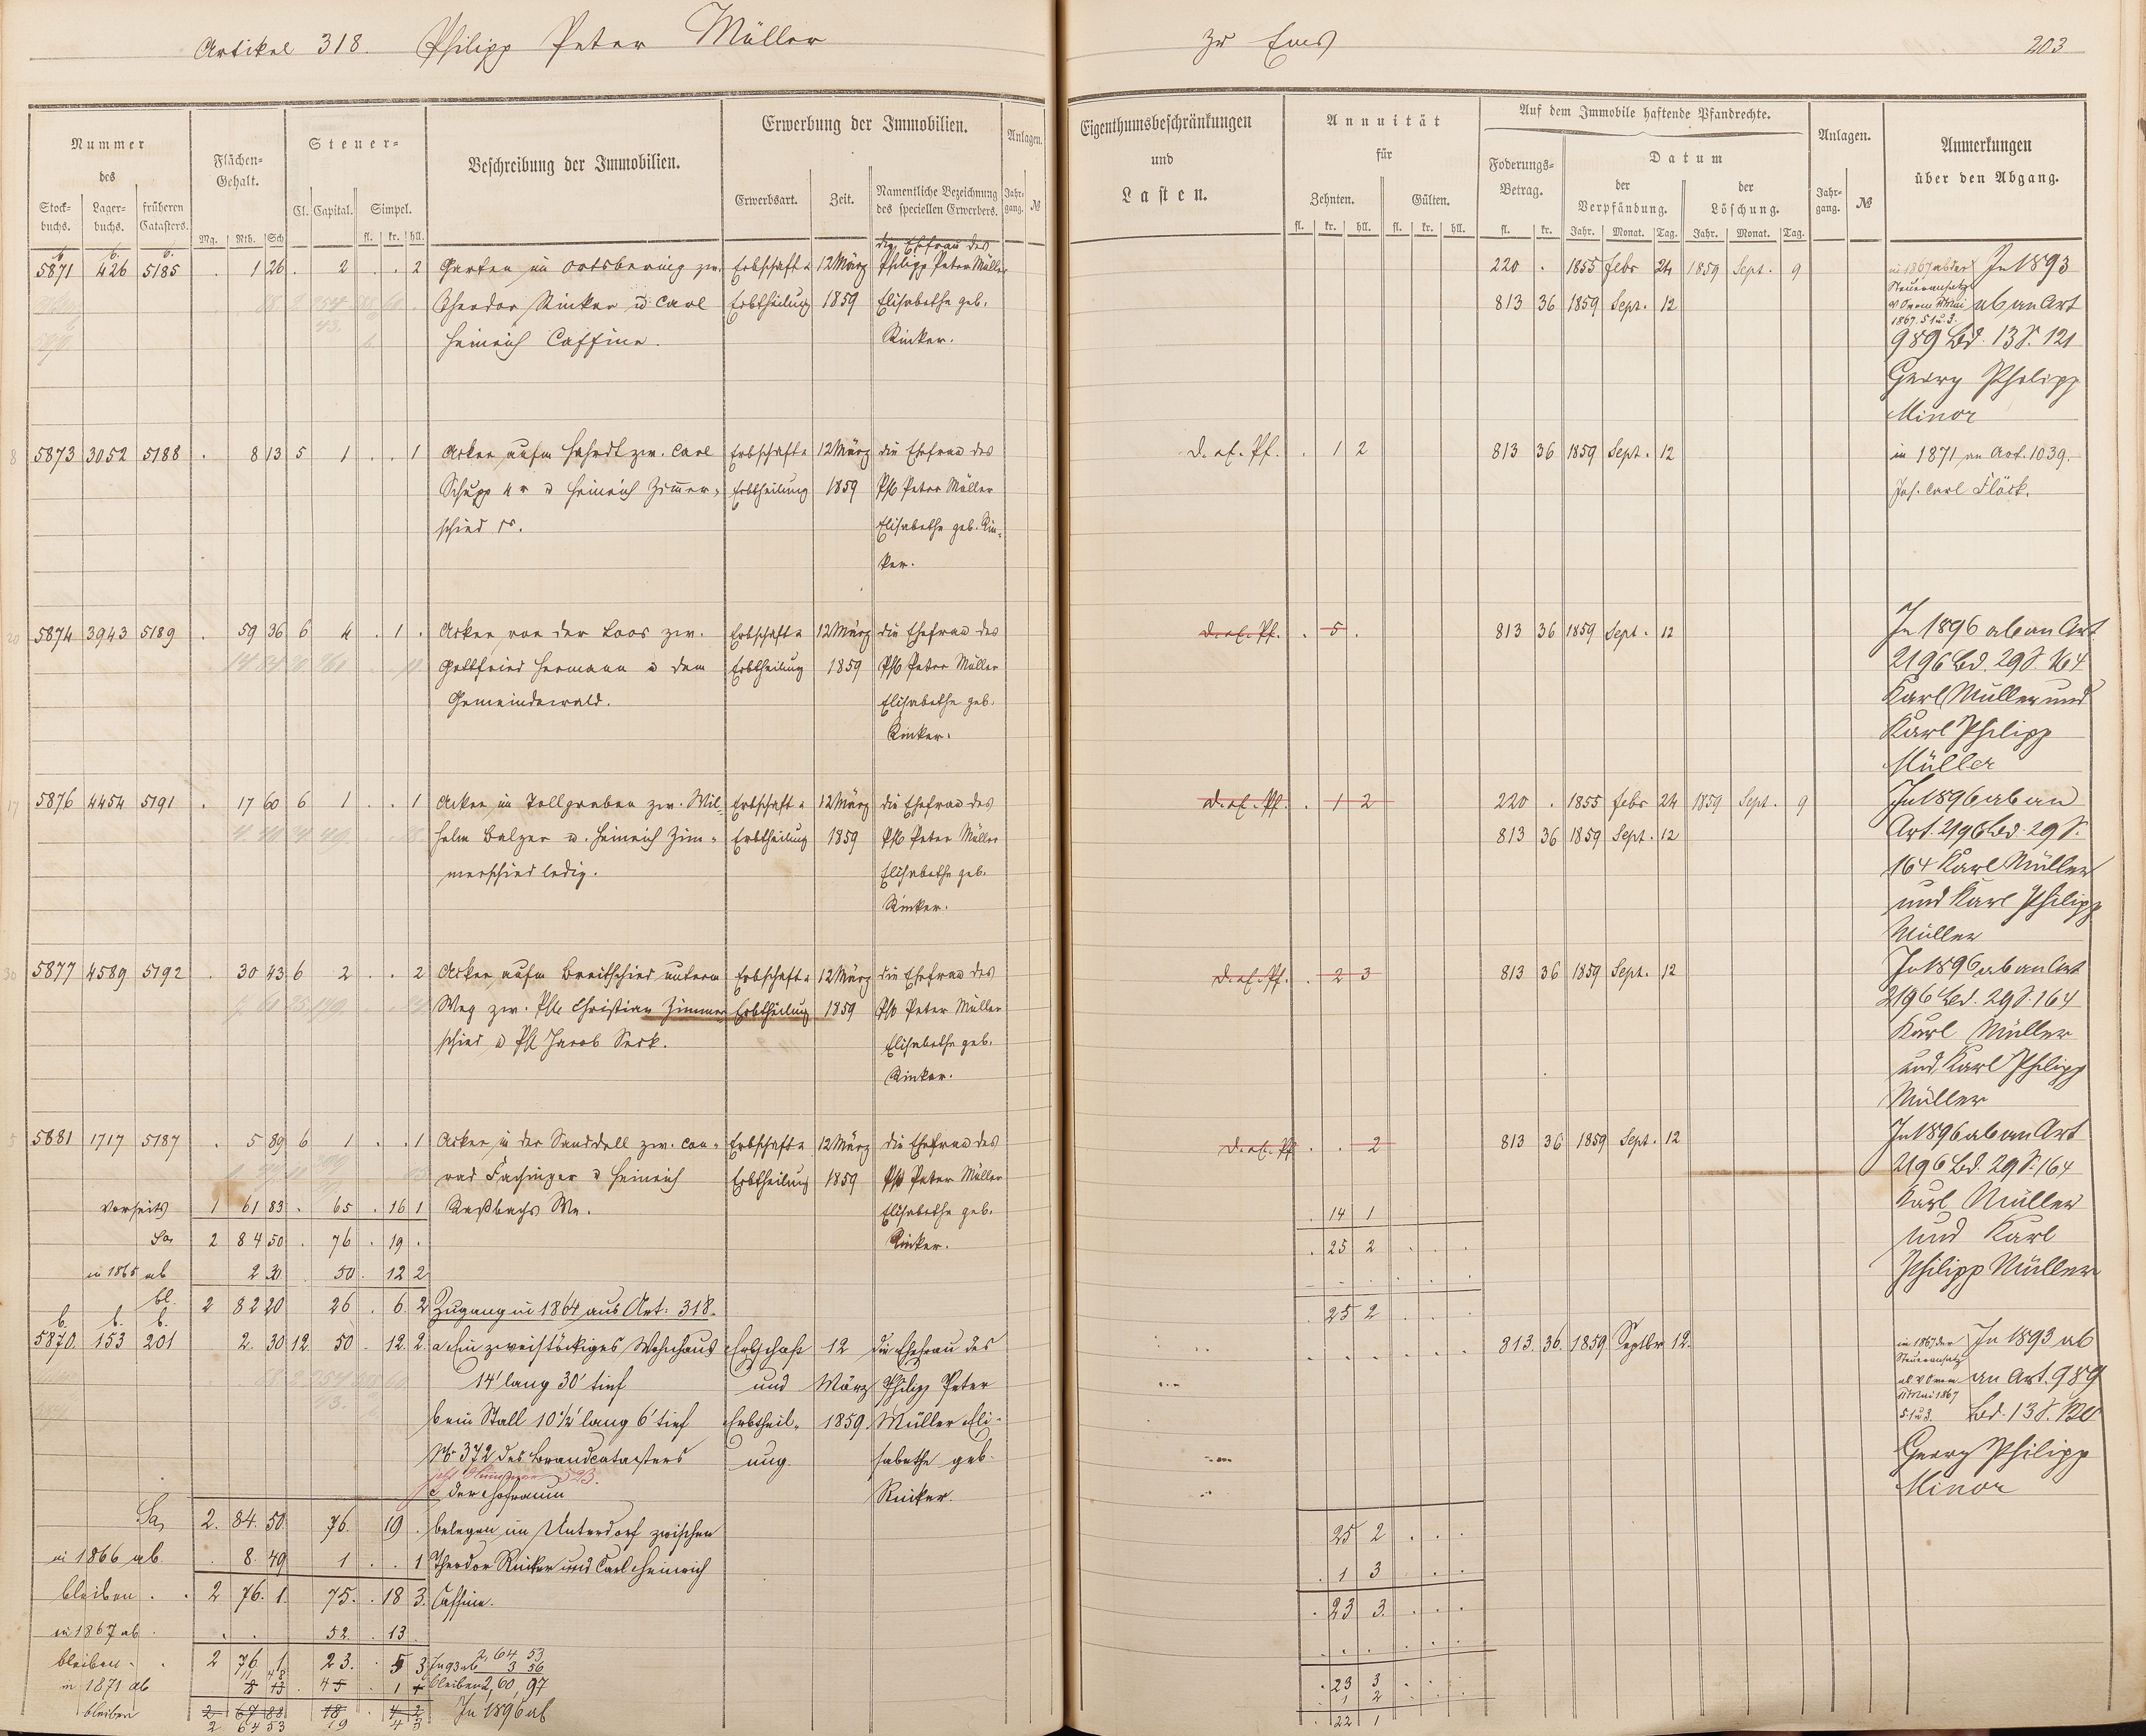 Artikel 318. Philipp Peter Müller
zu Ems
203
Nummer
des
Stock-
buchs.
Lager-
buchs.
früheren
Catasters.
Flächen-
Gehalt.
Mg. Rth. Sch
Steuer-
Cl. Capital. Simpel.
fl. kr. hll.
Beschreibung der Immobilien.
Erwerbung der Immobilien.
Erwerbsart. Zeit.
Namentliche Bezeichnung
des speciellen Erwerbers.
Anlagen.
Jahr-
gang. №
Eigenthumsbeschränkungen
und
Lasten.
Annuität
für
Zehnten. Gülten.
fl. kr. hll. fl. kr. hll.
Auf dem Immobile haftende Pfandrechte.
Foderungs-
Betrag.
fl. kr.
Datum
der
Verpfändung.
der
Löschung.
Jahr. Monat. Tag. Jahr. Monat. Tag.
Anlagen.
Jahr-
gang. №
Anmerkungen
über den Abgang.
b. b. b.
5871 426 5185 . 1 26 . 2 . . 2 Garten im Ortsbering zw. Erbschaft u 12 März Philipp Peter Müller
Theodor Rinker u Carl Erbtheilung 1859 Elisabethe geb.
Heinrich Caffine. Rinker.
220 . 1855 Febr 24 1859 Sept. 9
813 36 1859 Sept. 12
In 1893
ab an Art
989 Bd. 13 S. 121
Georg Philipp
Minor
8 5873 3052 5188 . 8 13 5 1 . . 1 Acker aufm Hahrdt zw. Carl Erbschaft u 12 März die Ehefrau des
Schupp 4r u Heinrich Zimmer- Erbtheilung 1859 Phil Peter Müller
schied Elisabethe geb. Rin-
ker.
d. ef. Pf. . 1 2 813 36 1859 Sept. 12
in 1871 an Art. 1039.
Joh. Carl Flöck.
20 5874 3943 5189 . 59 36 6 4 . 1 . Acker vor der Loos zw. Erbschaft u 12 März die Ehefrau des
Gottfried Hermann u dem Erbtheilung 1859 Phil Peter Müller
Gemeindewald. Elisabethe geb.
Rinker.
d. ef. Pf. . 5 . 813 36 1859 Sept. 12
In 1896 ab an Art
2196 Bd. 29 S. 164
Karl Müller und
Karl Philipp
Müller
17 5876 4454 5191 . 17 60 6 1 . . 1 Acker im Tollgraben zw. Wil- Erbschaft u 12 März die Ehefrau des
helm Balzer u. Heinrich Zim- Erbtheilung 1859 Phil Peter Müller
merschied ledig. Elisabethe geb.
Rinker.
d. ef. Pf. . 1 2 220 . 1855 Febr 24 1859 Sept. 9
813 36 1859 Sept. 12
In 1896 ab an
Art. 2196 Bd. 29 S.
164 Karl Müller
und Karl Philipp
Müller
30 5877 4589 5192 . 30 43 6 2 . . 2 Acker aufm Breitschied unterm Erbschaft u 12 März die Ehefrau des
Weg zw. Phil Christian Zimmer Erbtheilung 1859 Phil Peter Müller
schied u Phil Jacob Seck. Elisabethe geb.
Rinker.
d. ef. Pf. . 2 3 813 36 1859 Sept. 12
In 1896 ab an Art
2196 Bd. 29 S. 164
Karl Müller
und Karl Philipp
Müller
5 5881 1717 5187 . 5 89 6 1 . . 1 Acker in der Sanddell zw. Con- Erbschaft u 12 März die Ehefrau des
rad Fachinger u Heinrich Erbtheilung 1859 Phil Peter Müller
Elisabethe geb.
Rinker.
d. ef. Pf . . 2 813 36 1859 Sept. 12
In 1896 ab an Art
2196 Bd. 29 S. 164
Karl Müller
und Karl
Philipp Müller
Vorseits 1 61 83 . 65 . 16 1 . 14 1
Sa 2 84 50 . 76 . 19 . . 25 2
in 1865 ab 2 30 50 . 12 2
bl. 2 82 20 26 . 6. 2 Zugang in 1864 aus Art: 318. . 25 2
b. b. b.
5870. 153 201 2. 30 12. 50 . 12. 2. a. Ein zweistöckiges Wohnhaus Erbschaft 12 die Ehefrau des
14' lang 30' tief und März Philipp Peter
b ein Stall 10½' lang 6' tief Erbtheil- 1859. Müller Eli-
№ 372 des Brandcatasters ung. sabethe geb.
c der Hofraum Rinker.
belegen im Unterdorf zwischen
Theodor Rinker und Carl Heinrich
Caffine.
813. 36. 1859 Septbr 12.
In 1893 ab
an Art. 989
Bd. 13 S.
Georg Philipp
Minor
Sa, 2. 84. 50. 76. 19 . 25 2
in 1866 ab . 8. 49 1 . . 1 . 1 3
bleiben . . 2 76. 1. 75. . 18 3. . 23 3.
in 1867 ab . . . 52. . 13
bleiben . . 2 76 1 23. . 5 3 . 23 3
In 93 ab
2,64 53
3 56
bleiben 2,60,97
in 1871 ab 1 2
bleiben 2 67 88 18 4 2 . 22 1
2 64 53 19 4 3
In 1896 ab